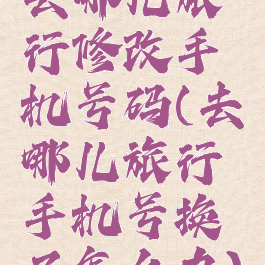 去哪儿旅
行修改手
机号码(去
哪儿旅行
手机号换
了怎么办)